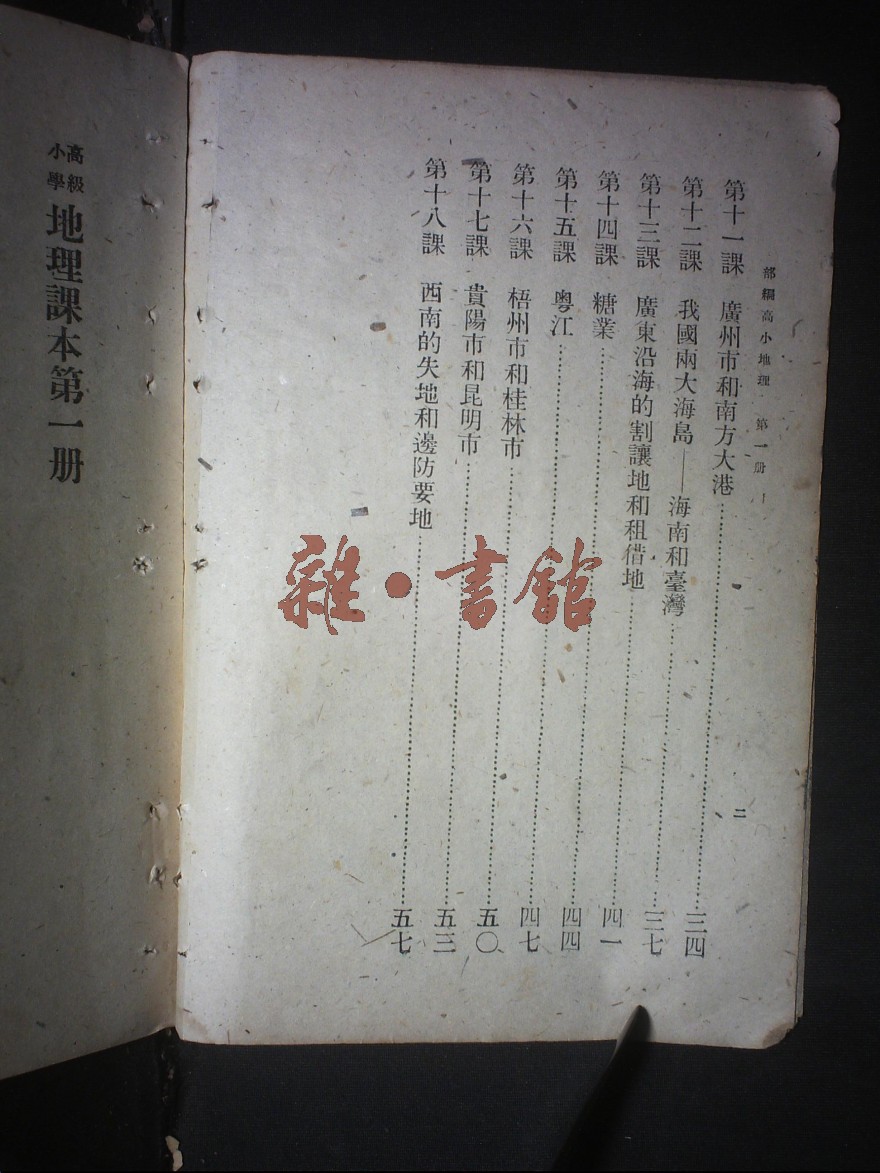 部編高小地理 第一册
二
第十一課 廣州市和南方大港……三四
第十二課 我國兩大海島——海南和臺灣……三七
第十三課 廣東沿海的割讓地和租借地……四一
第十四課 糖業……四四
第十五課 粵江……四七
第十六課 梧州市和桂林市……五〇
第十七課 貴陽市和昆明市……五三
第十八課 西南的失地和邊防要地……五七
高級小學 地理課本第一册
雜·書館